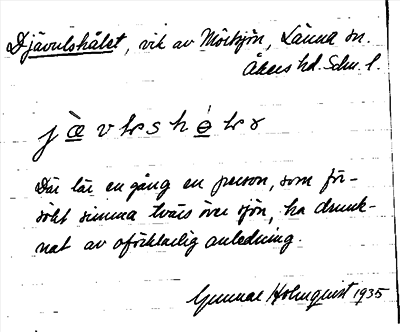 Djävulshålet, vik av Mörksjön, Länna sn.
Åkers hd. Södm. l.
Där lär en gång en person, som för-
sökt simma tvärs över sjön, ha drunk-
nat av oförklarlig anledning.
Gunnar Holmquist 1935